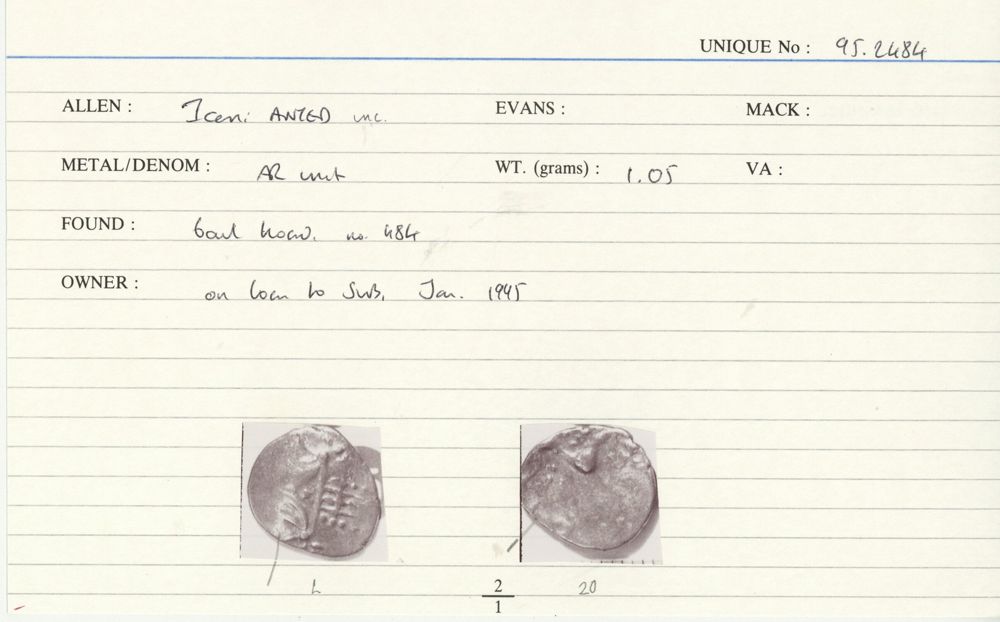 UNIQUE No : 95.2484
ALLEN : Iceni ANTED unc. EVANS : MACK :
METAL/DENOM : AR unit WT. (grams) : 1.05 VA :
FOUND : hoard. no. 484
OWNER : on loan to Jan. 1995
L 2/1 20